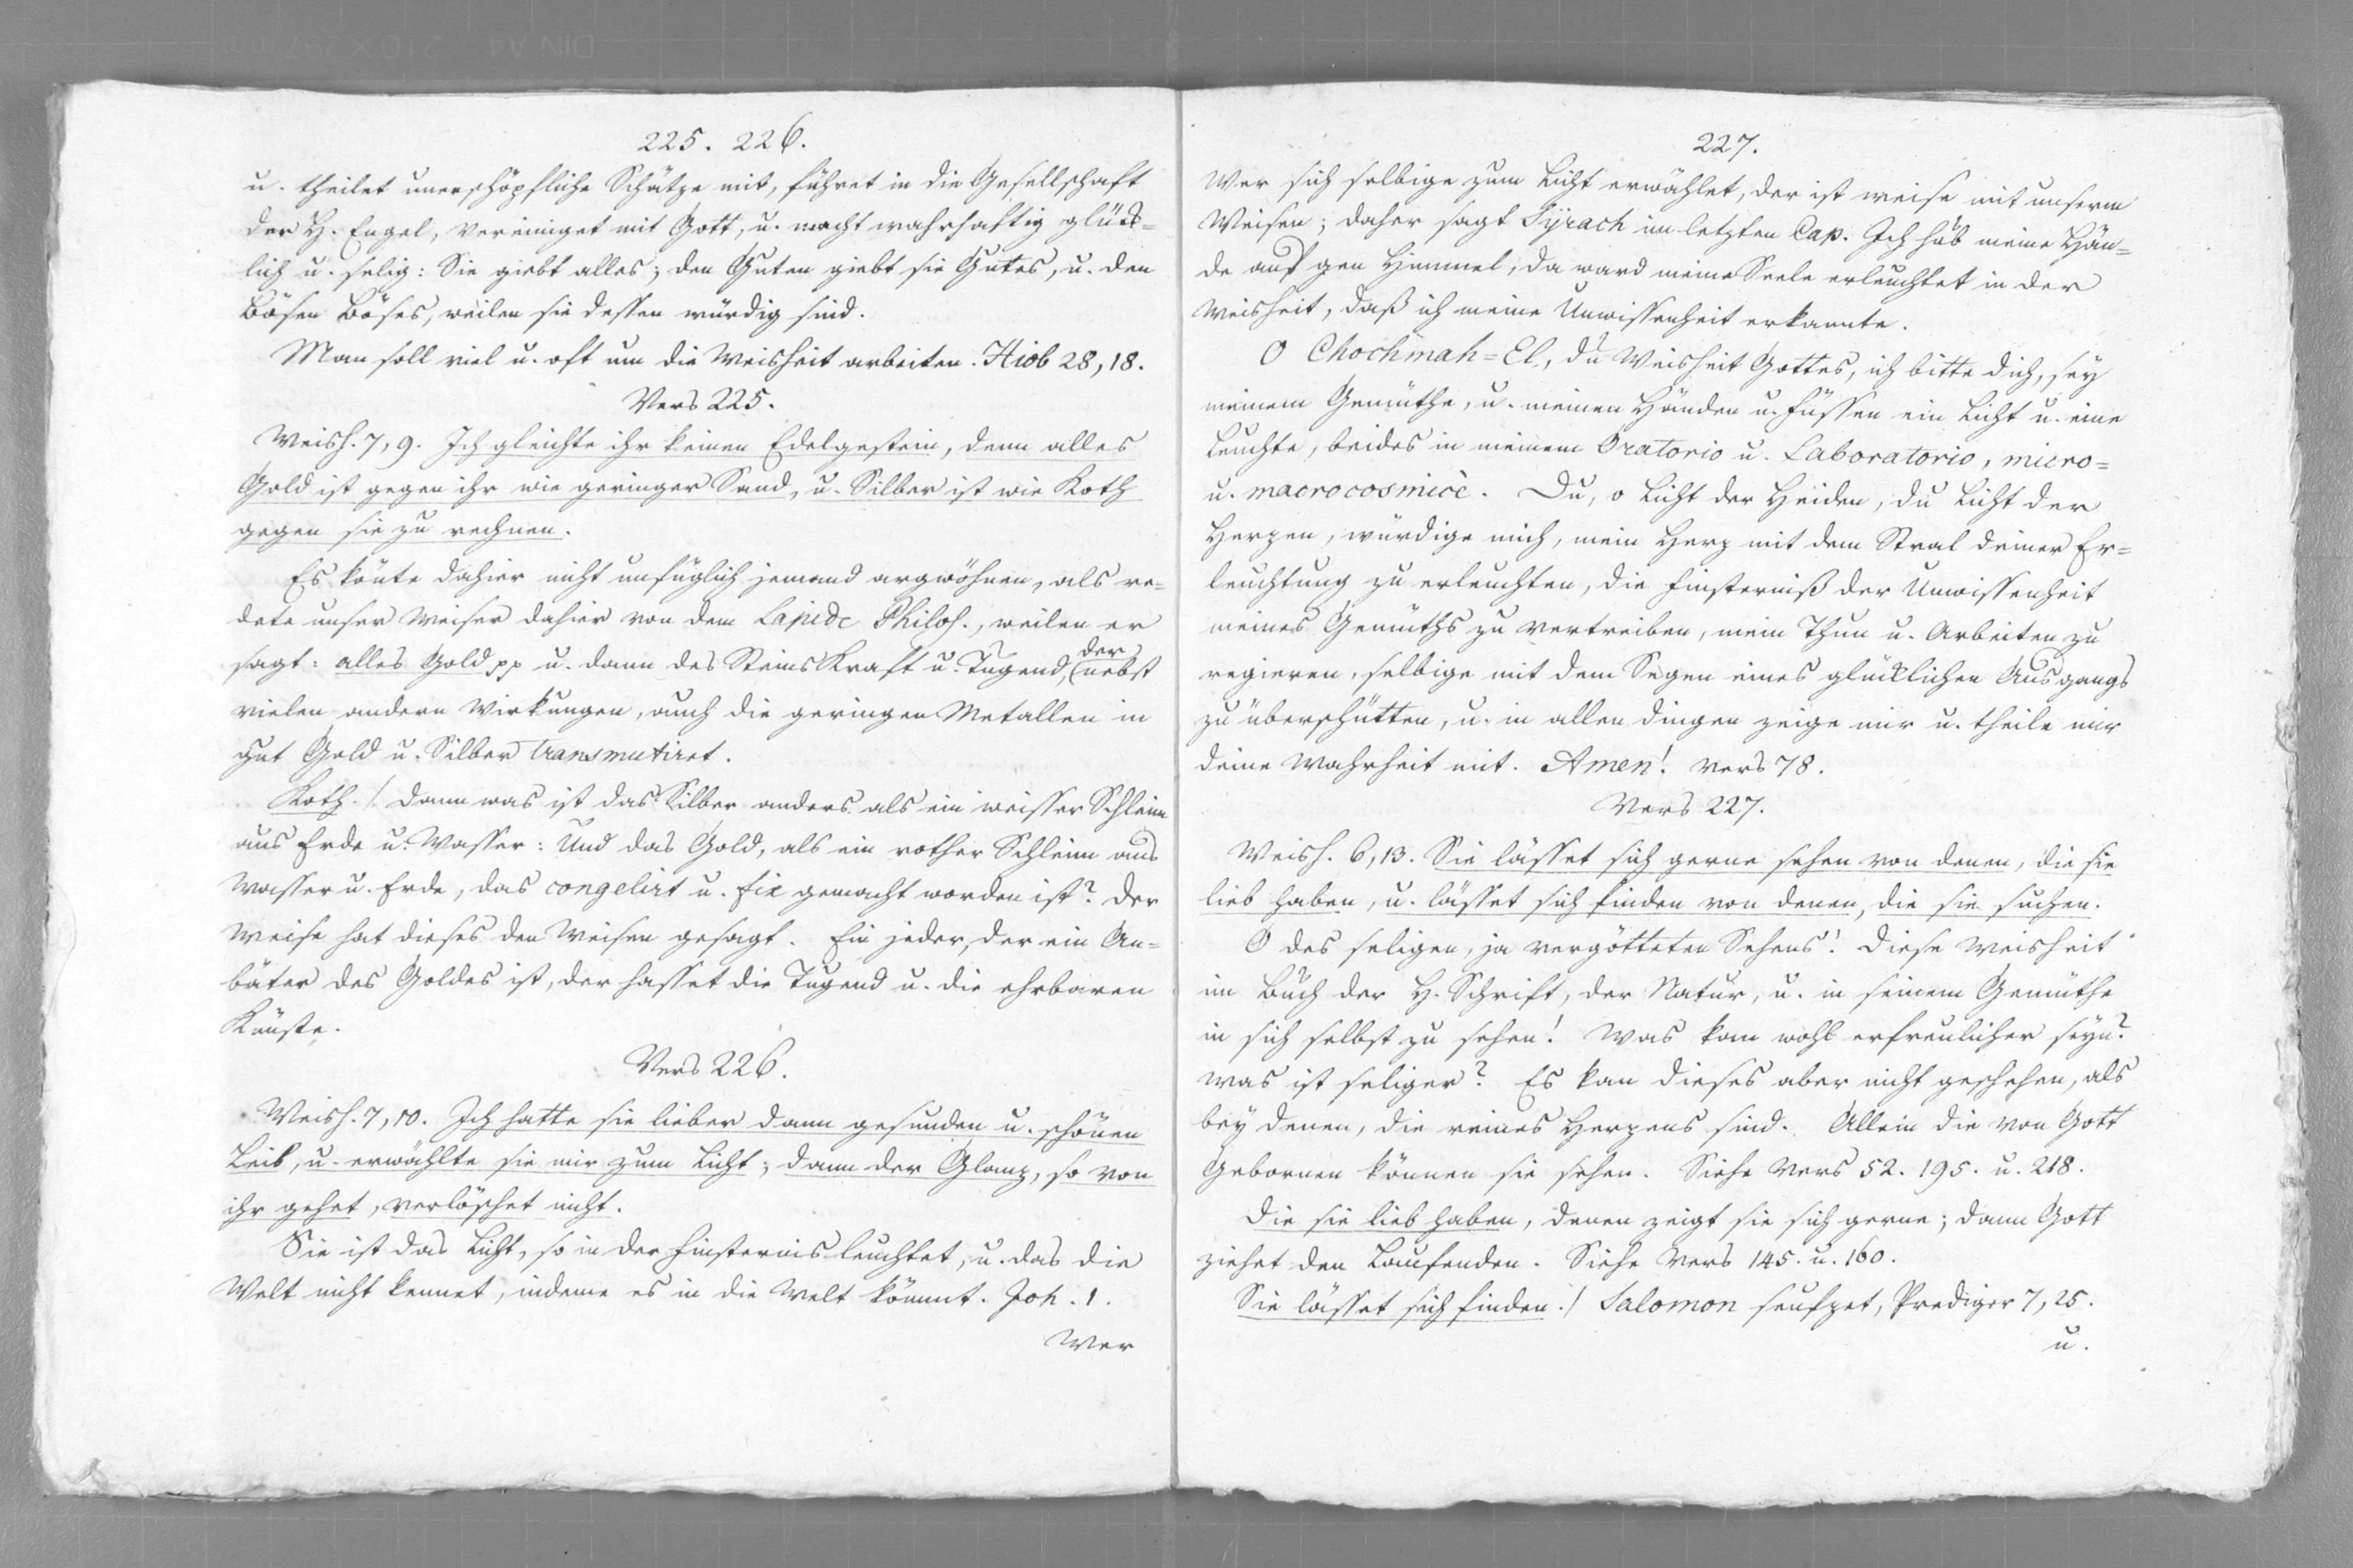 225. 226.
u. theilet unerschöpfliche Schätze mit, führet in die Gesellschaft
der H. Engel, vereiniget mit Gott, u. macht wahrhaftig glück=
lich u. selig: Sie giebt alles; den Guten giebt sie Gutes, u. den
Bösen Böses, weilen sie dessen würdig sind.
Man soll viel u. oft um die Weisheit arbeiten. Hiob 28, 18.
Vers 225.
Weish. 7, 9. Ich gleichte ihr keinen Edelgestein, denn alles
Gold ist gegen ihr wie geringer Sand, u. Silber ist wie Koth
gegen sie zu rechnen.
Es könte dahier nicht unfüglich jemand argwöhnen, als re=
dete unser Weiser dahier von dem Lapide Philos., weilen er
sagt: alles Gold pp u. dann des Steins Kraft u. Tugend, der nebst
vielen andern Wirkungen, auch die geringen Metallen in
gut Gold u. Silber transmutiret.
Koth./. dann was ist das Silber anders als ein weisser Schleim
aus Erde u. Wasser: Und das Gold, als ein rother Schleim aus
Wasser u. Erde, das congelirt u. fix gemacht worden ist? Der
Weise hat dieses den Weisen gesagt. Ein jeder, der ein An=
bäter des Goldes ist, der hasset die Tugend u. die ehrbaren
Künste.
Vers 226.
Weish. 7, 10. Ich hatte sie lieber dann gesunden u. schönen
Leib, u. erwählte sie mir zum Licht; dann der Glanz, so von
ihr gehet, verlöschet nicht.
Sie ist das Licht, so in der Finsternis leuchtet, u. das die
Welt nicht kennet, indeme es in die Welt kömmt. Joh. 1.
Wer
227.
Wer sich selbige zum Licht erwählet, der ist weise mit unserm
Weisen; daher sagt Syrach im letzten Cap. Ich hub meine Hän=
de auf gen Himmel, da ward meine Seele erleuchtet in der
Weisheit, daß ich meine Unwissenheit erkannte.
O Chochmah=El, du Weisheit Gottes, ich bitte dich, sey
meinem Gemüthe, u. meinen Händen u. Füssen ein Licht u. eine
Leuchte, beides in meinem Oratorio u. Laboratorio, micro=
u. macrocosmicè. Du, o Licht der Heiden, du Licht der
Herzen, würdige mich, mein Herz mit dem Stral deiner Er=
leuchtung zu erleuchten, die Finsterniß der Unwissenheit
meines Gemüths zu vertreiben, mein Thun u. Arbeiten zu
regieren, selbige mit dem Segen eines glücklichen Ausgangs
zu überschütten, u. in allen Dingen zeige mir u. theile mir
deine Wahrheit mit. Amen! Vers 78.
Vers 227.
Weish. 6, 13. Sie lässet sich gerne sehen von denen, die sie
lieb haben, u. lässet sich finden von denen, die sie suchen.
O des seligen, ja vergötteten Sehens! Diese Weisheit
im Buch der H. Schrift, der Natur, u. in seinem Gemüthe
in sich selbst zu sehen! Was kan wohl erfreulicher seyn?
was ist seliger? Es kan dieses aber nicht geschehen, als
bey denen, die reines Herzens sind. Allein die von Gott
Gebornen können sie sehen. Siehe Vers 52. 195. u. 218.
Die sie lieb haben, denen zeigt sie sich gerne; dann Gott
ziehet den Laufenden. Siehe Vers 145. u. 160.
Sie lässet sich finden./ Salomon seufzet, Prediger 7, 25.
u.